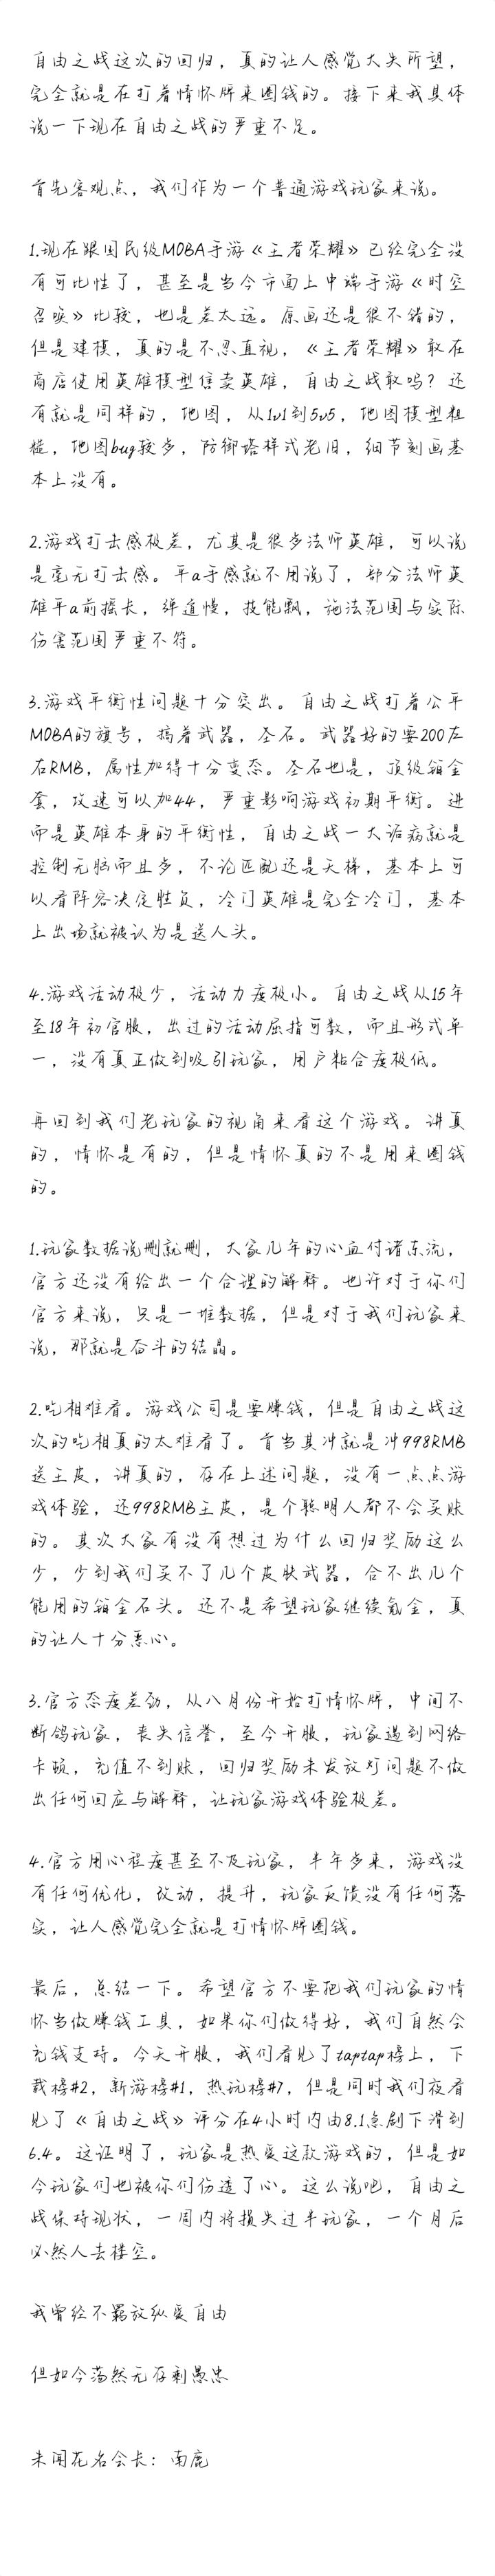 自由之战这次的回归，真的让人感觉大失所望，
完全就是在打着情怀牌来圈钱的。接下来我具体
说一下现在自由之战的严重不足。
首先客观点，我们作为一个普通游戏玩家来说。
1.现在跟国民级MOBA手游《王者荣耀》已经完全没
有可比性了，甚至是当今市面上中端手游《时空
召唤》比较，也是差太远。原画还是很不错的，
但是建模，真的是不忍直视，《王者荣耀》敢在
商店使用英雄模型信卖英雄，自由之战敢吗？还
有就是同样的，地图，从1v1到5v5，地图模型粗
糙，地图bug较多，防御塔样式老旧，细节刻画基
本上没有。
2.游戏打击感极差，尤其是很多法师英雄，可以说
是毫无打击感。平a手感就不用说了，部分法师英
雄平a前摇长，弹道慢，技能飘，施法范围与实际
伤害范围严重不符。
3.游戏平衡性问题十分突出。自由之战打着公平
MOBA的旗号，搞着武器，圣石。武器好的要200左
右RMB，属性加得十分变态。圣石也是，顶级铂金
套，攻速可以加44，严重影响游戏初期平衡。进
而是英雄本身的平衡性，自由之战一大诟病就是
控制无脑而且多，不论匹配还是天梯，基本上可
以看阵容决定胜负，冷门英雄是完全冷门，基本
上出场就被认为是送人头。
4.游戏活动极少，活动力度极小。自由之战从15年
至18年初官服，出过的活动屈指可数，而且形式单
一，没有真正做到吸引玩家，用户粘合度极低。
再回到我们老玩家的视角来看这个游戏。讲真
的，情怀是有的，但是情怀真的不是用来圈钱
的。
1.玩家数据说删就删，大家几年的心血付诸东流，
官方还没有给出一个合理的解释。也许对于你们
官方来说，只是一堆数据，但是对于我们玩家来
说，那就是奋斗的结晶。
2.吃相难看。游戏公司是要赚钱，但是自由之战这
次的吃相真的太难看了。首当其冲就是冲998RMB
送王皮，讲真的，存在上述问题，没有一点点游
戏体验，还998RMB王皮，是个聪明人都不会买账
的。其次大家有没有想过为什么回归奖励这么
少，少到我们买不了几个皮肤武器，合不出几个
能用的铂金石头。还不是希望玩家继续氪金，真
的让人十分恶心。
3.官方态度差劲，从八月份开始打情怀牌，中间不
断鸽玩家，丧失信誉，至今开服，玩家遇到网络
卡顿，充值不到账，回归奖励未发放灯问题不做
出任何回应与解释，让玩家游戏体验极差。
4.官方用心程度甚至不及玩家，半年多来，游戏没
有任何优化，改动，提升，玩家反馈没有任何落
实，让人感觉完全就是打情怀牌圈钱。
最后，总结一下。希望官方不要把我们玩家的情
怀当做赚钱工具，如果你们做得好，我们自然会
充钱支持。今天开服，我们看见了taptap榜上，下
载榜#2，新游榜#1，热玩榜#7，但是同时我们夜看
见了《自由之战》评分在4小时内由8.1点剧下滑到
6.4。这证明了，玩家是热爱这款游戏的，但是如
今玩家们也被你们伤透了心。这么说吧，自由之
战保持现状，一周内将损失过半玩家，一个月后
必然人去楼空。
我曾经不羁放纵爱自由
但如今荡然无存剩愚忠
未闻花名会长：南鹿